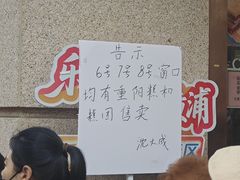 告示
6号7号8号窗口
均有重阳糕和
糕团售卖
沈大成
乐
浦
区